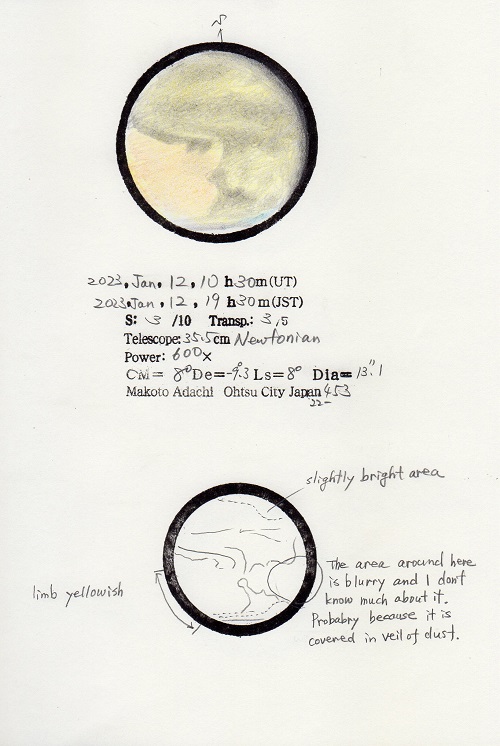 S
2023, Jan, 12, 10 h 30 m (UT)
2023, Jan, 12, 19 h 30 m (JST)
S: 3 /10 Transp.: 3 /5
Telescope: 35.5cm Newtonian
Power: 600×
CM= 8° De= -9.°3 Ls= 8° Dia= 13."1
Makoto Adachi Ohtsu City Japan 453
22-
slightly bright area
The area around here
is blurry and I don't
know much about it.
Probabry because it is
covered in veil of dust.
limb yellowish